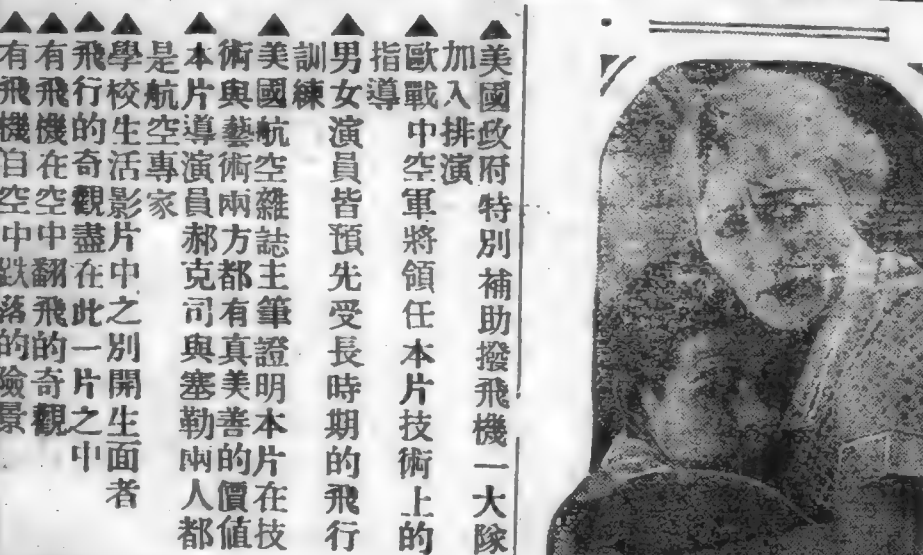 ▲美國政府特別補助撥飛機一大隊
加入排演
▲歐戰中空軍將領任本片技術上的
指導
▲男女演員皆預先受長時期的飛行
訓練
▲美國航空雜誌主筆證明本片在技
術與藝術兩方都有真美善的價值
▲本片導演員郝克司與塞勒兩人都
是航空專家
▲學校生活影片中之別開生面者
▲飛行的奇觀盡在此一片之中
▲有飛機在空中翻飛的奇觀
▲有飛機自空中跌落的險景